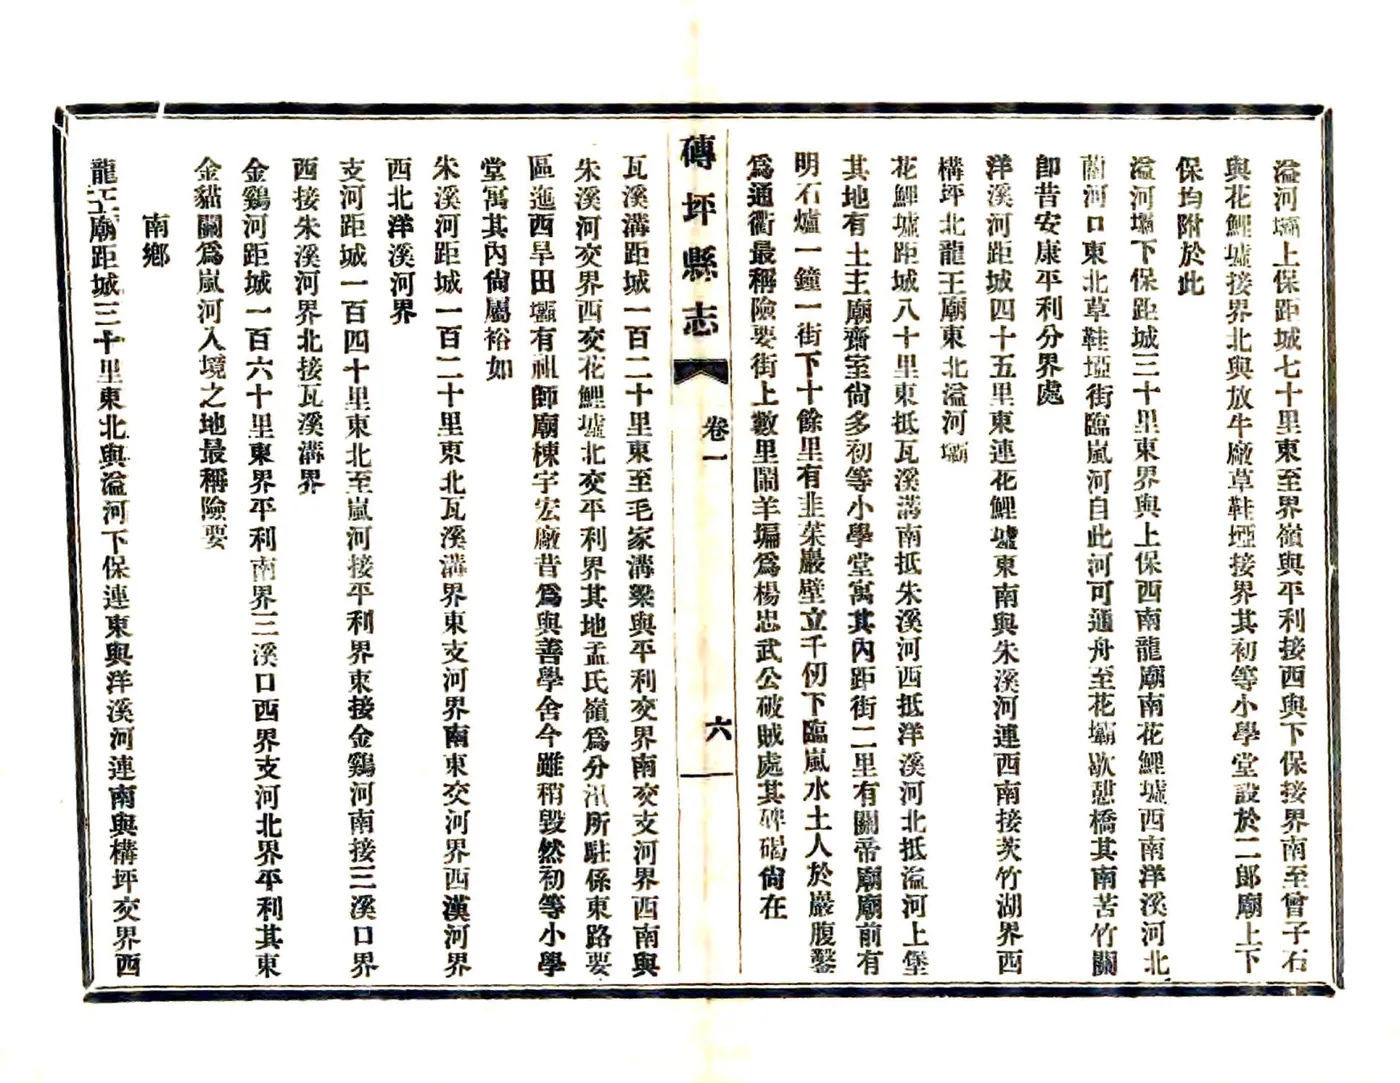 溢河壩上保距城七十里東至界嶺與平利接西與下保接界南至曾子石
與花鯉墟接界北與放牛廠草鞋埡接界其初等小學堂設於二郎廟上下
保均附於此
溢河壩下保距城三十里東界與上保西南龍廟南花鯉墟西南洋溪河北
藺河口東北草鞋埡街臨嵐河自此河可通舟至花壩歇憩橋其南苦竹關
卽昔安康平利分界處
洋溪河距城四十五里東連花鯉墟東南與朱溪河連西南接茨竹湖界西
構坪北龍王廟東北溢河壩
花鯉墟距城八十里東抵瓦溪溝南抵朱溪河西抵洋溪河北抵溢河上堡
其地有土主廟齋室尙多初等小學堂寓其內距街二里有關帝廟廟前有
明石爐一鐘一街下十餘里有韭菜巖壁立千仞下臨嵐水土人於巖腹鑿
爲通衢最稱險要街上數里鬧羊塥爲楊忠武公破賊處其碑碣尙在
磚坪縣志 卷一 六
瓦溪溝距城一百二十里東至毛家溝梁與平利交界南交支河界西南與
朱溪河交界西交花鯉墟北交平利界其地孟氏嶺爲分汛所駐係東路要
區迤西旱田壩有祖師廟棟宇宏廠昔爲與善學舍今雖稍毀然初等小學
堂寓其內尙屬裕如
朱溪河距城一百二十里東北瓦溪溝界東支河界南東交河界西漢河界
西北洋溪河界
支河距城一百四十里東北至嵐河接平利界東接金鷄河南接三溪口界
西接朱溪河界北接瓦溪溝界
金鷄河距城一百六十里東界平利南界三溪口西界支河北界平利其東
金貓關爲嵐河入境之地最稱險要
南鄉
龍王廟距城三十里東北與溢河下保連東與洋溪河連南與構坪交界西